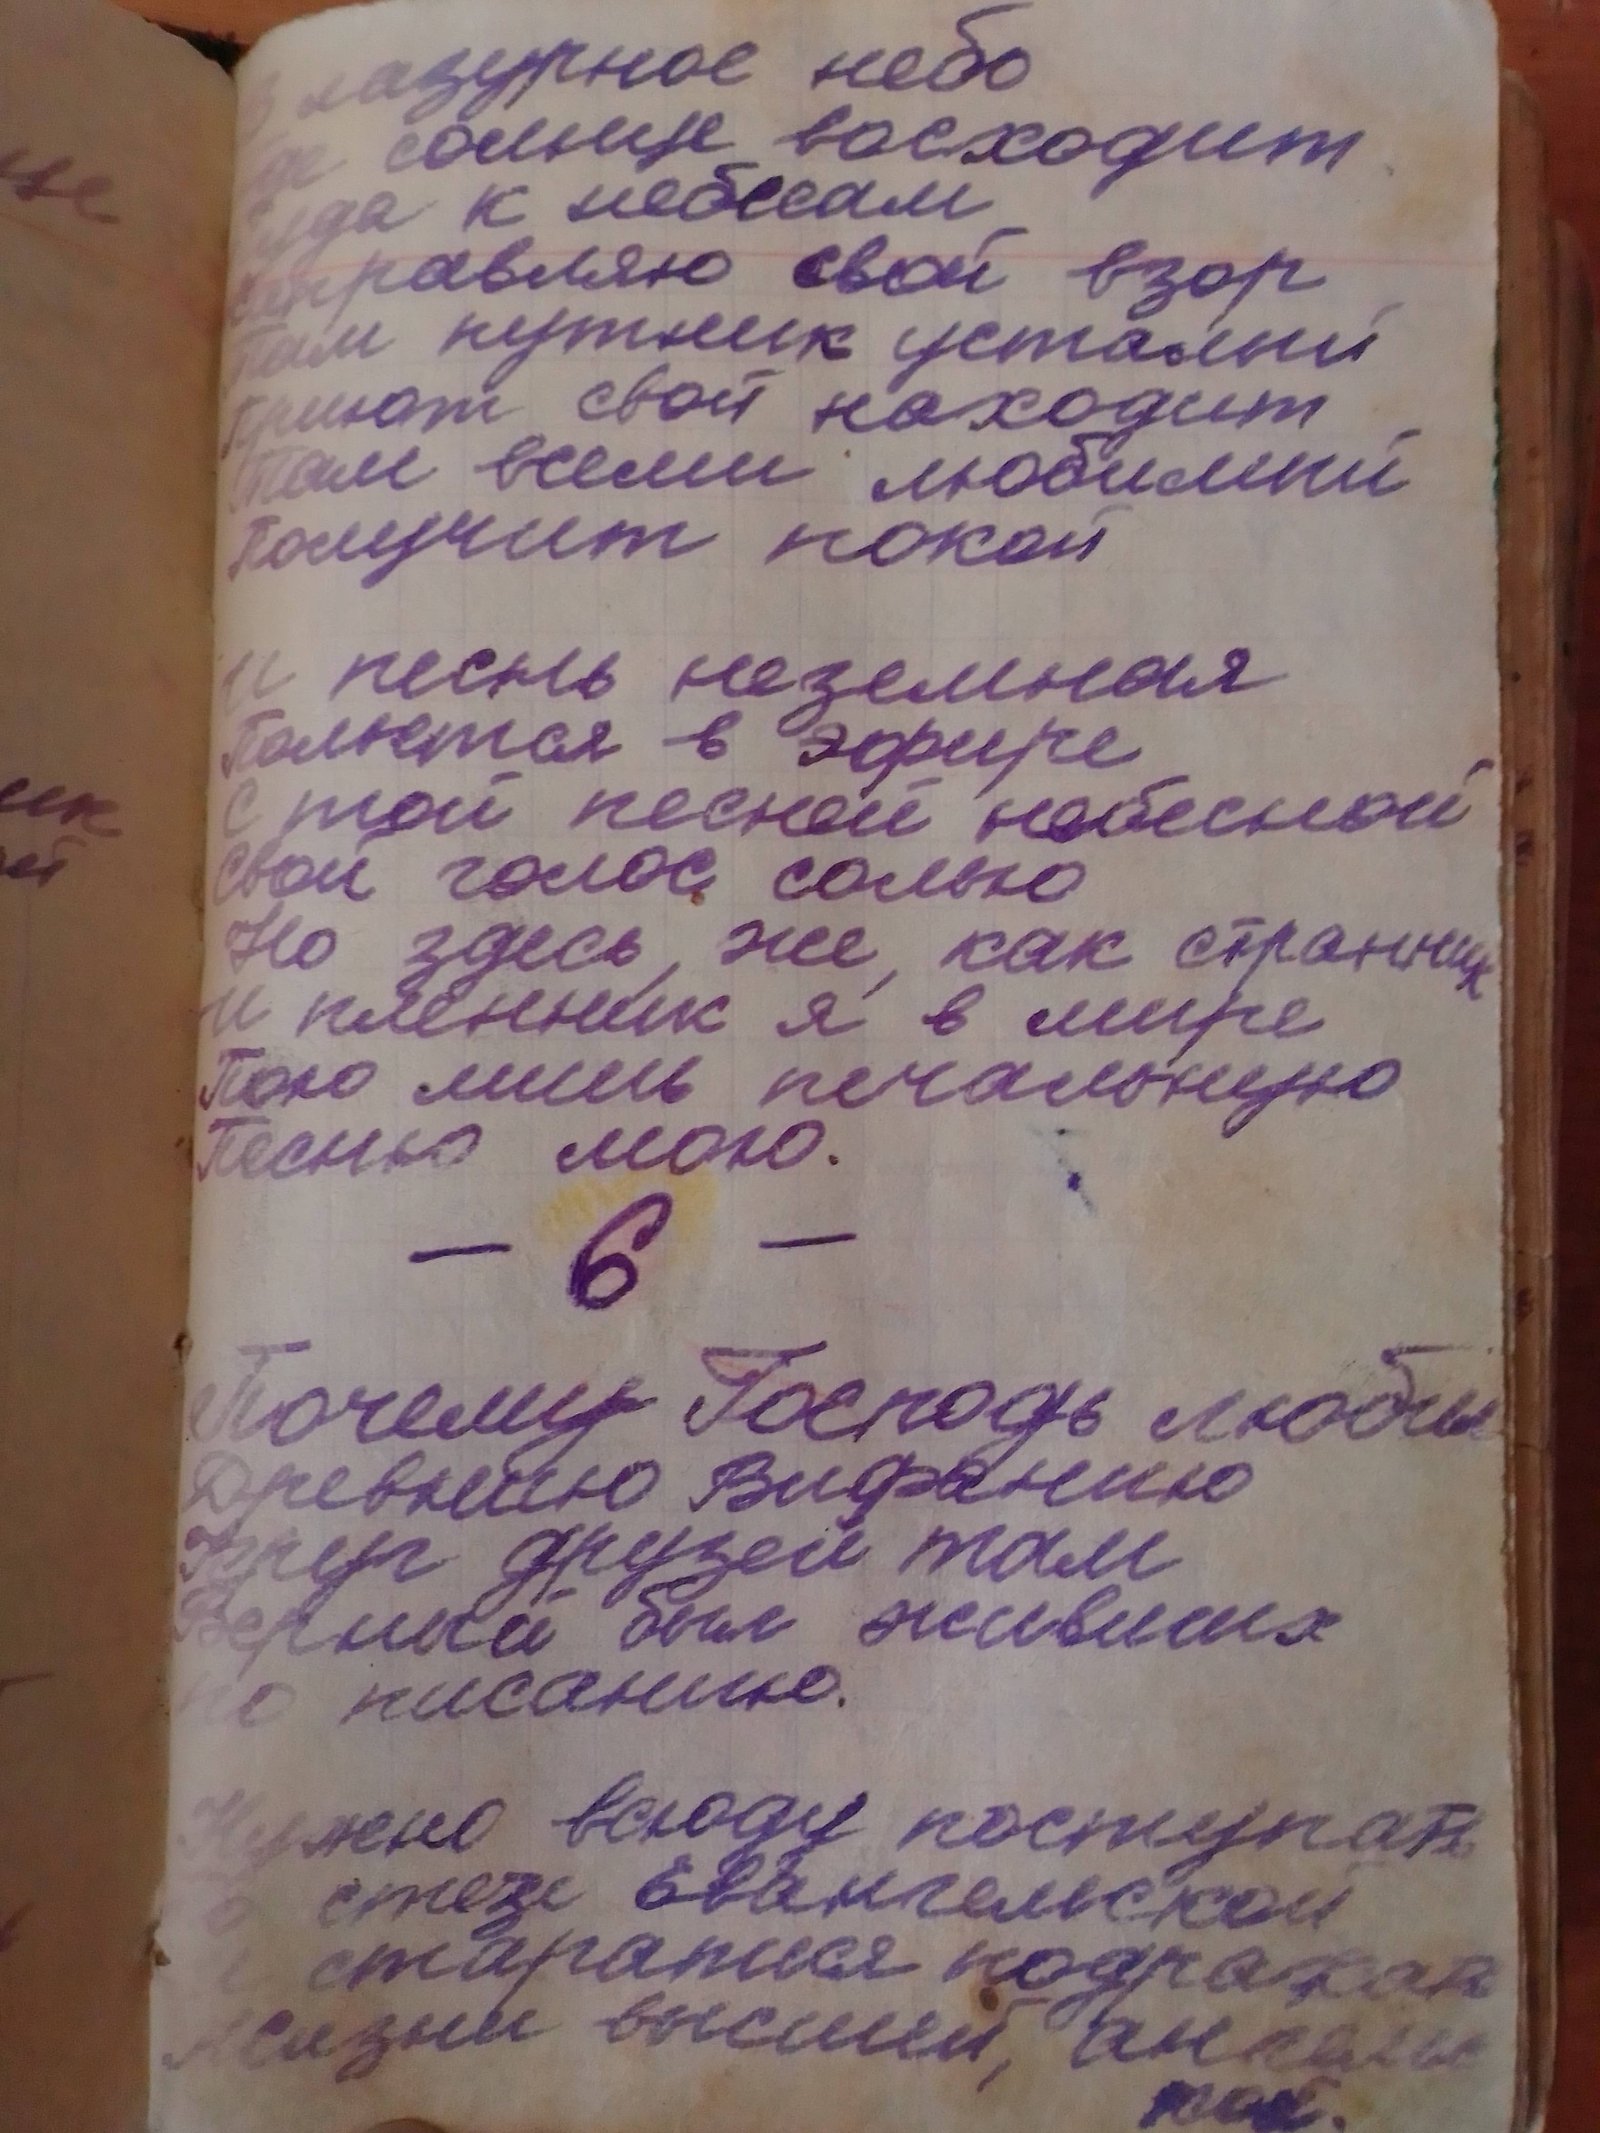 В лазурное небо
Где солнце восходит
Туда к небесам
Направляю свой взор
Там путник усталый
Приют свой находит
Там всеми любимый
Получит покой
И песнь неземная
Польется в эфире
С той песней небесной
Свой голос солью
Но здесь же, как странник
И пленник я в мире
Пою лишь печальную
Песню мою.
— 6 —
Почему Господь любил
Древнюю Вифанию
Круг друзей там
Верный был живших
по писанию.
Нужно всюду поступать
стезе Евангельской
И старатися подражать
Жизни высшей, ангель
кой.